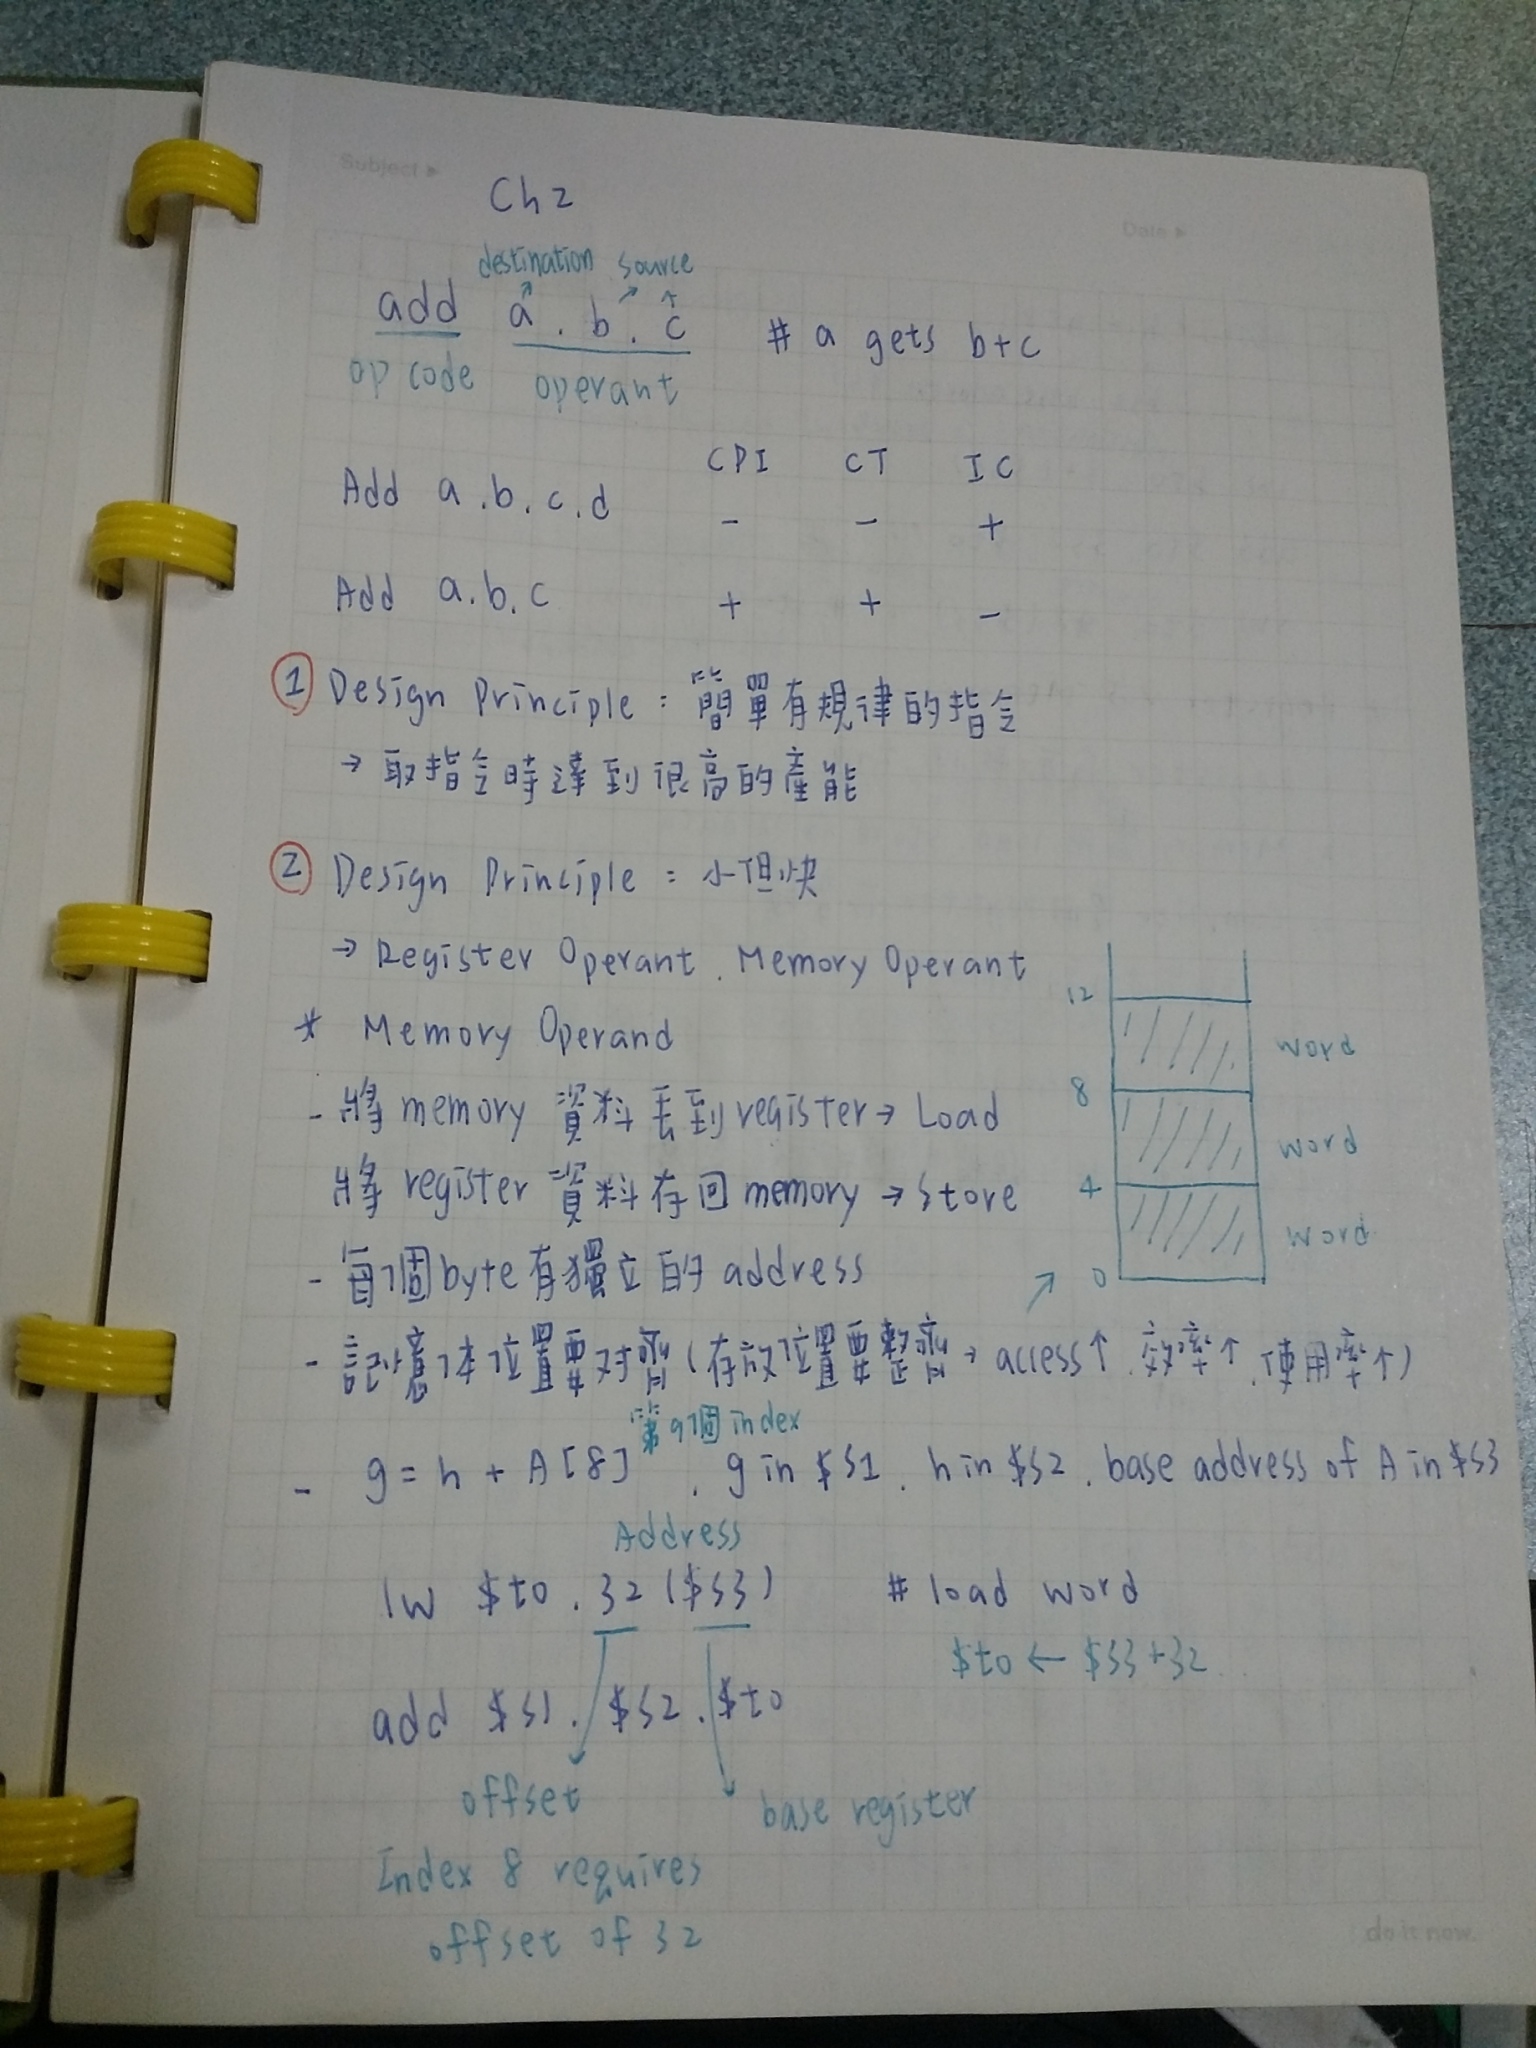 Subject ▸
Ch 2
Date ▸
destination source
add a . b . c # a gets b+c
op code operant
CPI CT IC
Add a . b . c . d - - +
Add a . b . c + + -
① Design Principle : 簡單有規律的指令
→ 取指令時達到很高的產能
② Design Principle : 小但快
→ Register Operant . Memory Operant
* Memory Operand
- 將 memory 資料丟到 register → Load
將 register 資料存回 memory → Store
- 每個 byte 有獨立的 address
12
word
8
word
4
word
0
- 記憶体位置要对齊 (存放位置要整齊 → access↑ . 效率↑ . 使用率↑)
第9個 index
- g = h + A[8] . g in $s1 . h in $s2 . base address of A in $s3
Address
lw $t0 . 32 ($s3) # load word
$t0 ← $s3+32
add $s1 . $s2 . $t0
offset base register
Index 8 requires
offset of 32
do it now.